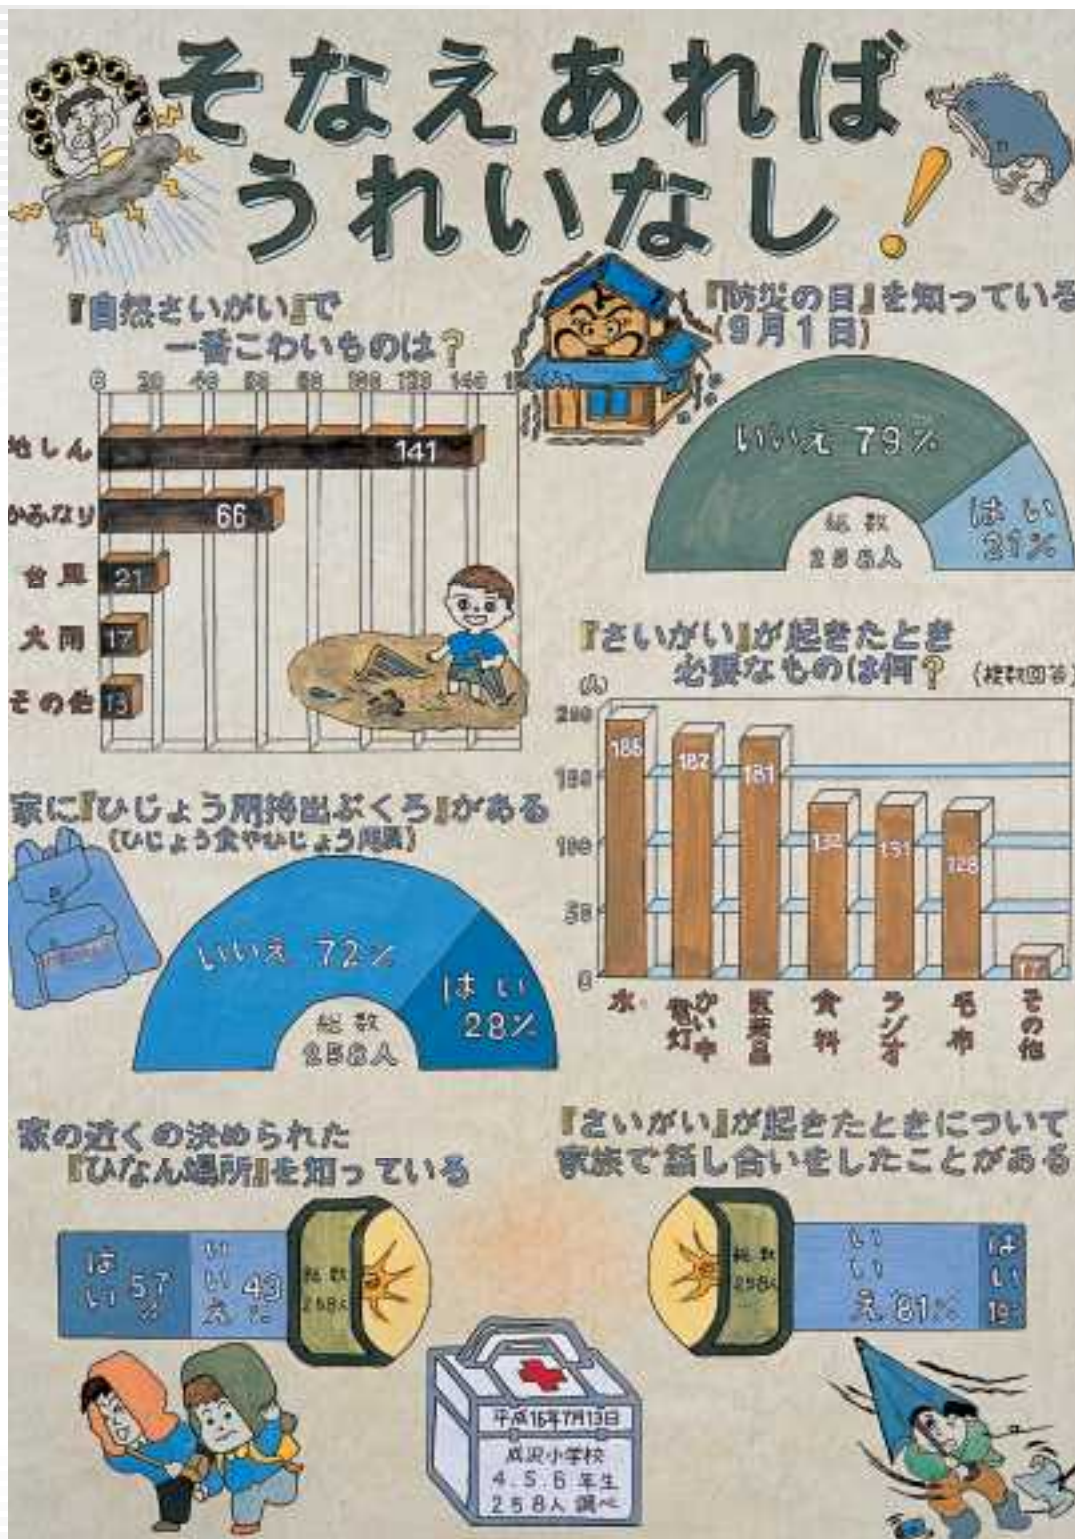 そなえあれば
うれいなし!
『自然さいがい』で
一番こわいものは?
0 20 40 60 80 100 120 140
地しん 141
かみなり 66
台風 21
大雨 17
その他 13
『防災の日』を知っている
(9月1日)
いいえ 79%
はい
21%
総数
258人
『さいがい』が起きたとき
必要なものは何? (複数回答)
(人)
200
150
100
50
0
181
132
131
128
水
かい中
電灯
医薬品
食料
ラジオ
毛布
その他
家に『ひじょう用持出ぶくろ』がある
(ひじょう食やひじょう用具)
いいえ 72%
はい
28%
総数
258人
家の近くの決められた
『ひなん場所』を知っている
はい 57%
いいえ 43%
総数
258人
『さいがい』が起きたときについて
家族で話し合いをしたことがある
総数
258人
いいえ 81%
はい
19%
平成16年7月13日
成沢小学校
4.5.6年生
258人調べ